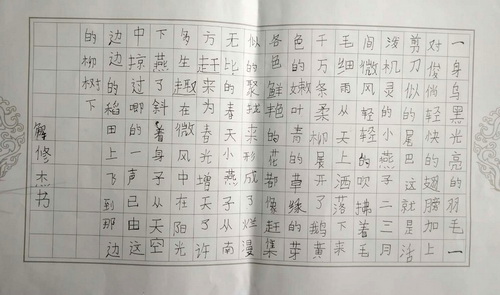 一身乌黑光亮的羽毛一
对俊俏轻快的翅膀加上
剪刀似的尾巴这就是活
泼机灵的小燕子二三月
间微风轻轻的吹拂着毛
毛细雨从天上洒落下来
千万条柔柳展开了鹅黄
色的嫩叶青的草缘的芽
各色鲜艳的花都像赶集
似的聚拢来形成了烂漫
无比的春天小燕子从南
方赶来为春光增添了许
多生趣在微风中在阳光
下燕子斜着身子从天空
中掠过唧的一声已由这
边的稻田上飞到那边
的柳树下
解修杰书